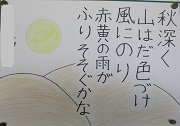 秋深く
山はだ色づけ
風にのり
赤黄の雨が
ふりそそぐかな